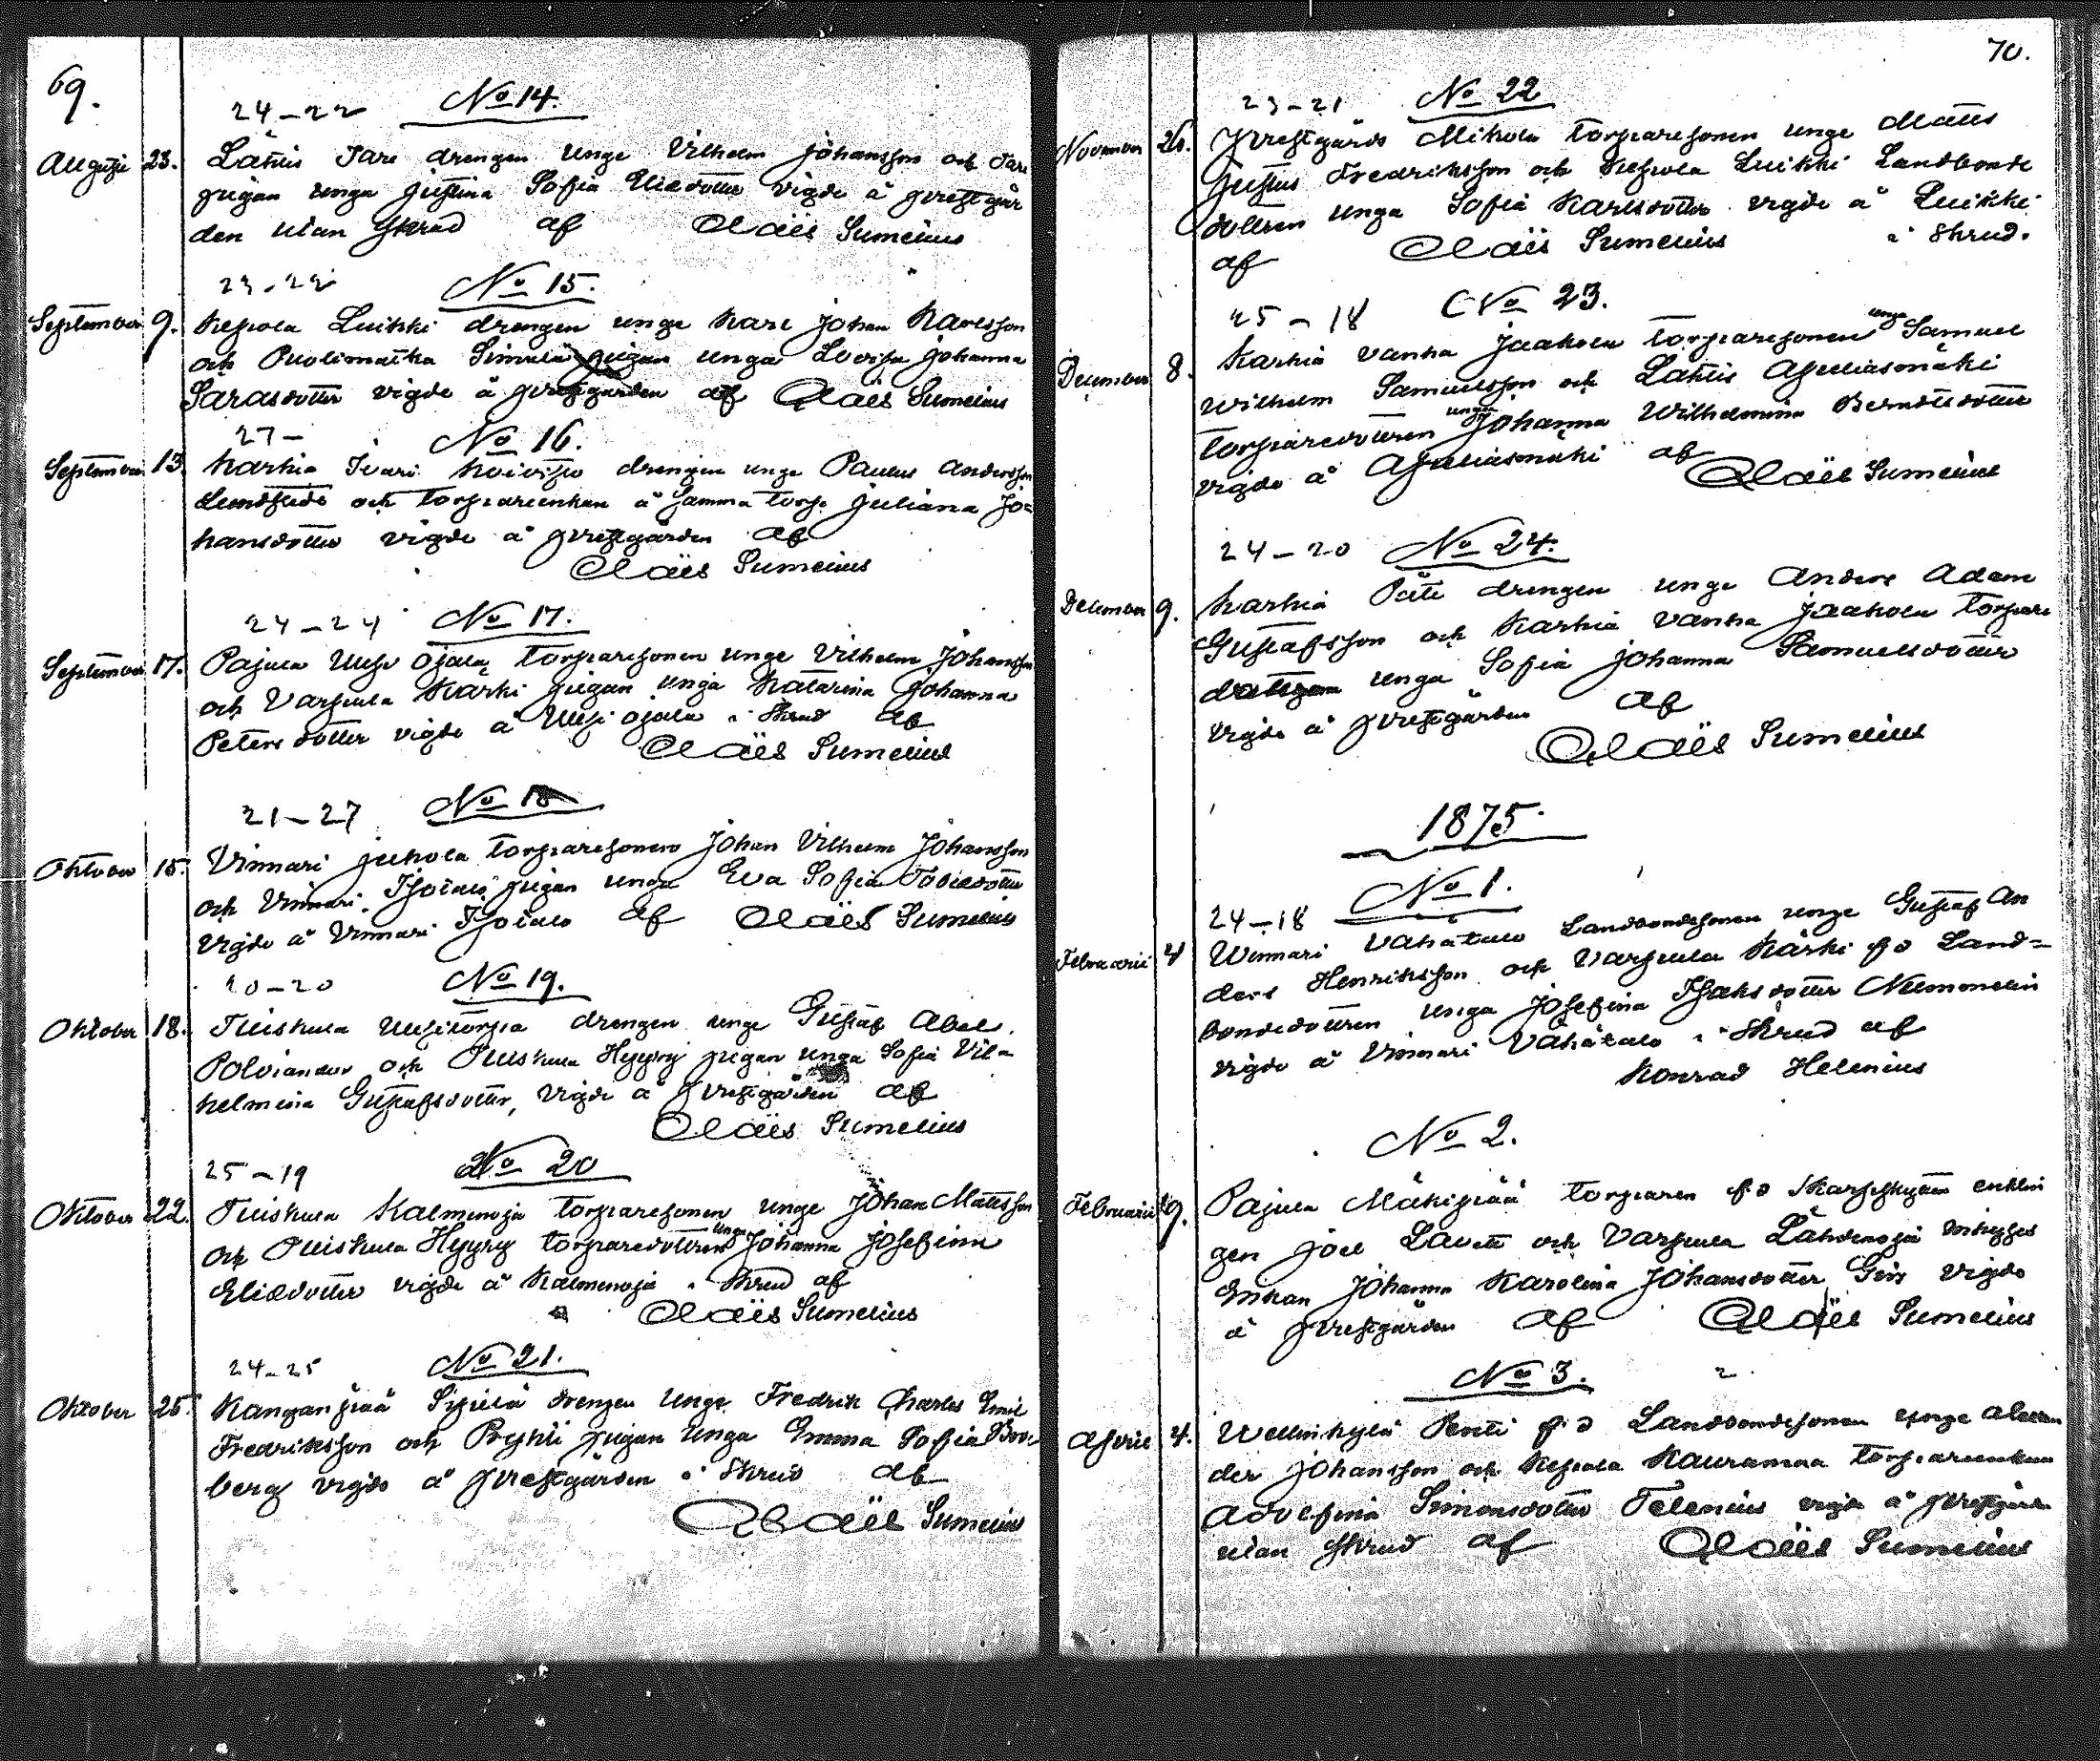 69.
24-22 No 14.
Augusti 23. Lattis Tare drengen unge Vilhelm Johansson och Tare
pigan unga Justina Sofia Eliædotter vigde å prestgår
den utan skrud af Claës Sumelius
23-22 No 15.
September 9. Kepola Luikki drengen unge Karl Johan Karlsson
och Puolimatka Simula pigan unga Lovisa Johanna
Sarasdotter vigde å prestgården af Claës Sumelius
27- No 16.
September 13. Karhia Ivari Koivisto drengen unge Paulus Andersson
Lundstedt och torpareenkan å samma torp Juliana Jo=
hansdotter vigde å prestgården af
Claës Sumelius
24-24 No 17.
September 17. Pajula Uusi Ojala torparesonen unge Vilhelm Johansson
och Varpula Kärki pigan unga Katarina Johanna
Petersdotter vigde å Uusi ojala i skrud af
Claës Sumelius
21-27 No 18
Oktober 15. Vinnari Juhola torparesonen Johan Vilhelm Johansson
och Vinnari Isotalo pigan unga Eva Sofia Tobiedotter
vigde å Vinnari Isotalo af Claës Sumelius
20-20 No 19.
Oktober 18. Tuiskula Uusitorpa drengen unge Gustaf Abel
Polviander och Tuiskula Hyyry pigan unga Sofia Vil-
helmina Gustafsdotter, vigde å prestgården af
Claës Sumelius
25-19 No 20
Oktober 22. Tuiskula Kalmenoja torparesonen unge Johan Mattsson
och Tuiskula Hyyry torparedottren unga Johanna Josefina
Eliædotter vigde å Kalmenoja i skrud af
Claës Sumelius
24-25 No 21.
Oktober 25. Kanganpää Sipilä drengen unge Fredrik Charles Emil
Fredriksson och Pryhti pigan unga Emma Sofia Bro-
berg vigde å prestgården i skrud af
Claës Sumelius
70.
23-21 No 22
November 26. Prestgårds Mikola torparesonen unge Matts
Justus Fredriksson och Kepola Luikki Landbonde
dottren unga Sofia Karlsdotter vigde å Luikki
af Claës Sumelius i skrud.
25-18 No 23.
December 8. Karhia Vanha Jaakola torparesonen unge Samuel
Wilhelm Samuelsson och Lattis Apuliasmäki
torparedottren unga Johanna Wilhelmina Berndtsdotter
vigde å Apuliasmäki af
Claës Sumelius
24-20 No 24.
December 9. Karhia Päti drengen unge Anders Adam
Gustafsson och Karhia Vanha Jaakola torpare
dottren unga Sofia Johanna Samuelsdotter
vigde å prestgården af
Claës Sumelius
1875.
24-18 No 1.
Februarii 4 Winnari Vähätalo Landbondesonen unge Gustaf An
ders Henriksson och Varpula Kärki fd Land=
bondedottren unga Josefina Isaksdotter Nummelin
vigde å Vinnari Vähätalo i skrud af
Konrad Helenius
No 2.
Februarii 19. Pajula Mäkipää torparen fd enklin
gen Joel Lavett och Varpula Lähdenoja
Enkan Johanna Karolina Johansdotter vigde
å prestgården af Claës Sumelius
No 3.
April 4. Wellinkylä Pentti fd Landbondesonen unge Alexan
der Johansson och Kepola Kauramaa torpareenkan
Adolfina Simonsdotter Telenius vigde å prestgården
utan skrud af Claës Sumelius